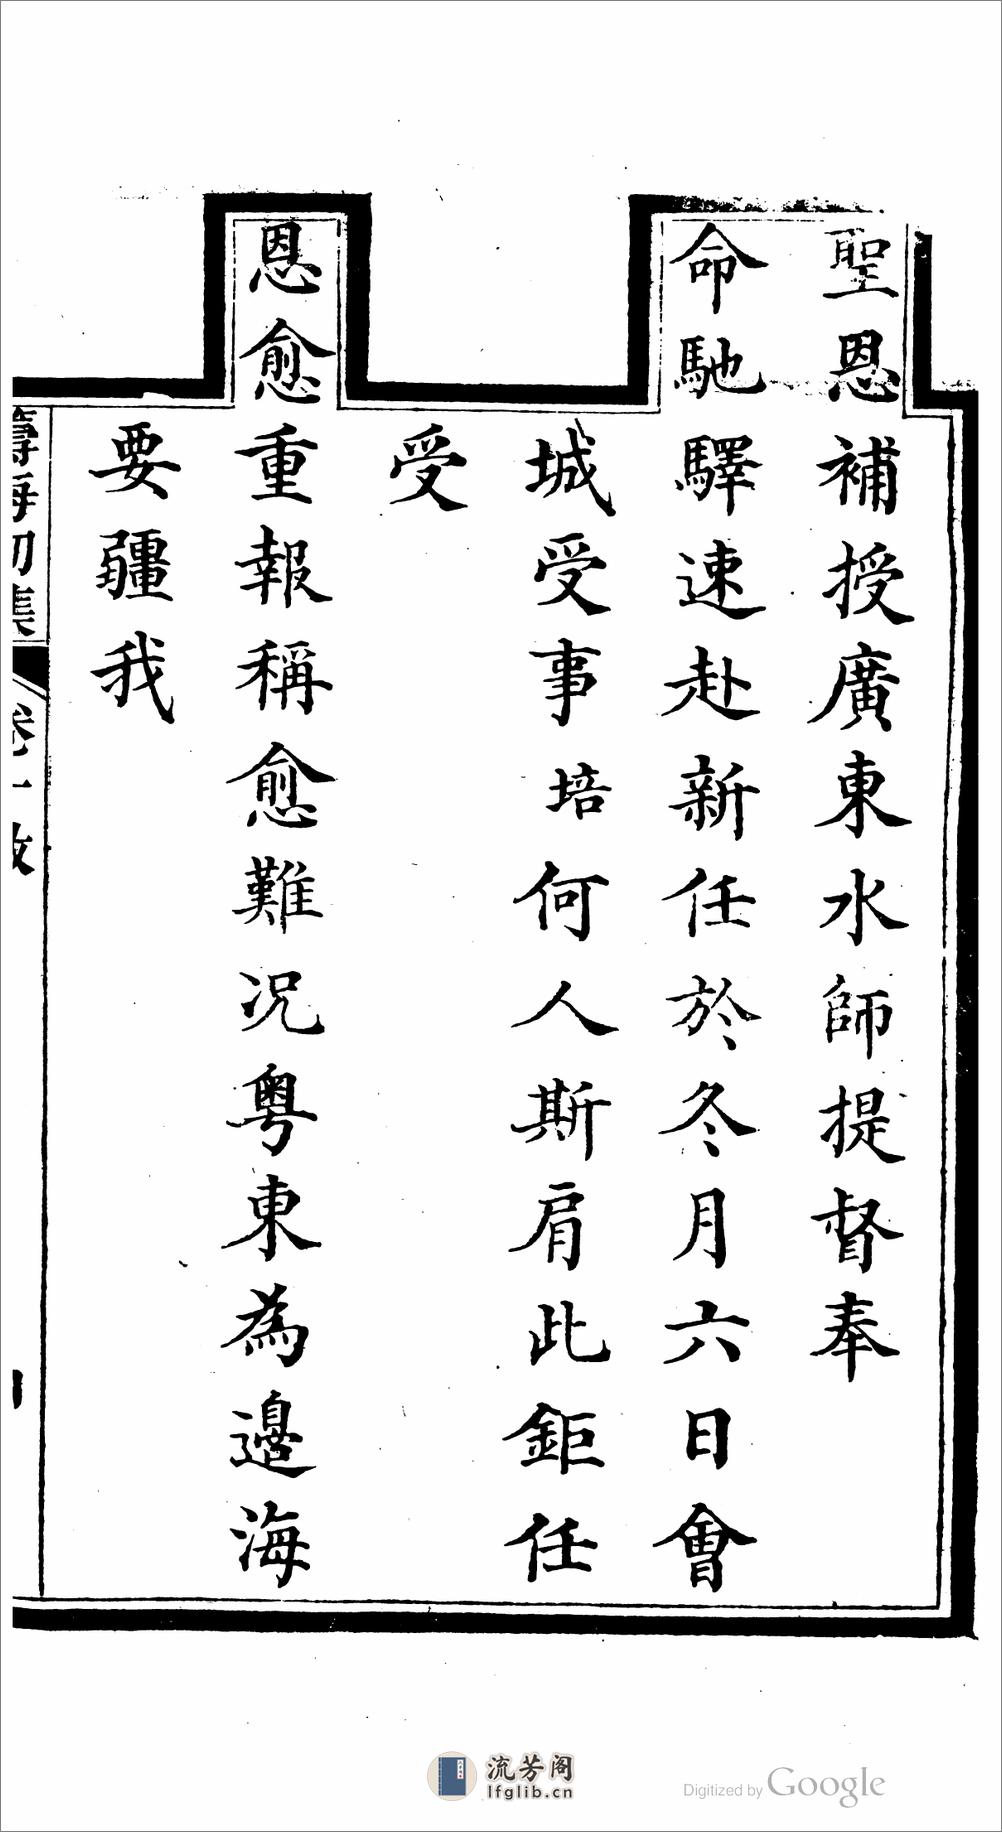 聖恩補授廣東水師提督奉
命馳驛速赴新任於冬月六日會
城受事培何人斯肩此鉅任
受
恩愈重報稱愈難况粵東為邊海
要疆我
籌海初集
卷一敘
流芳阁
lfglib.cn
Digitized by Google